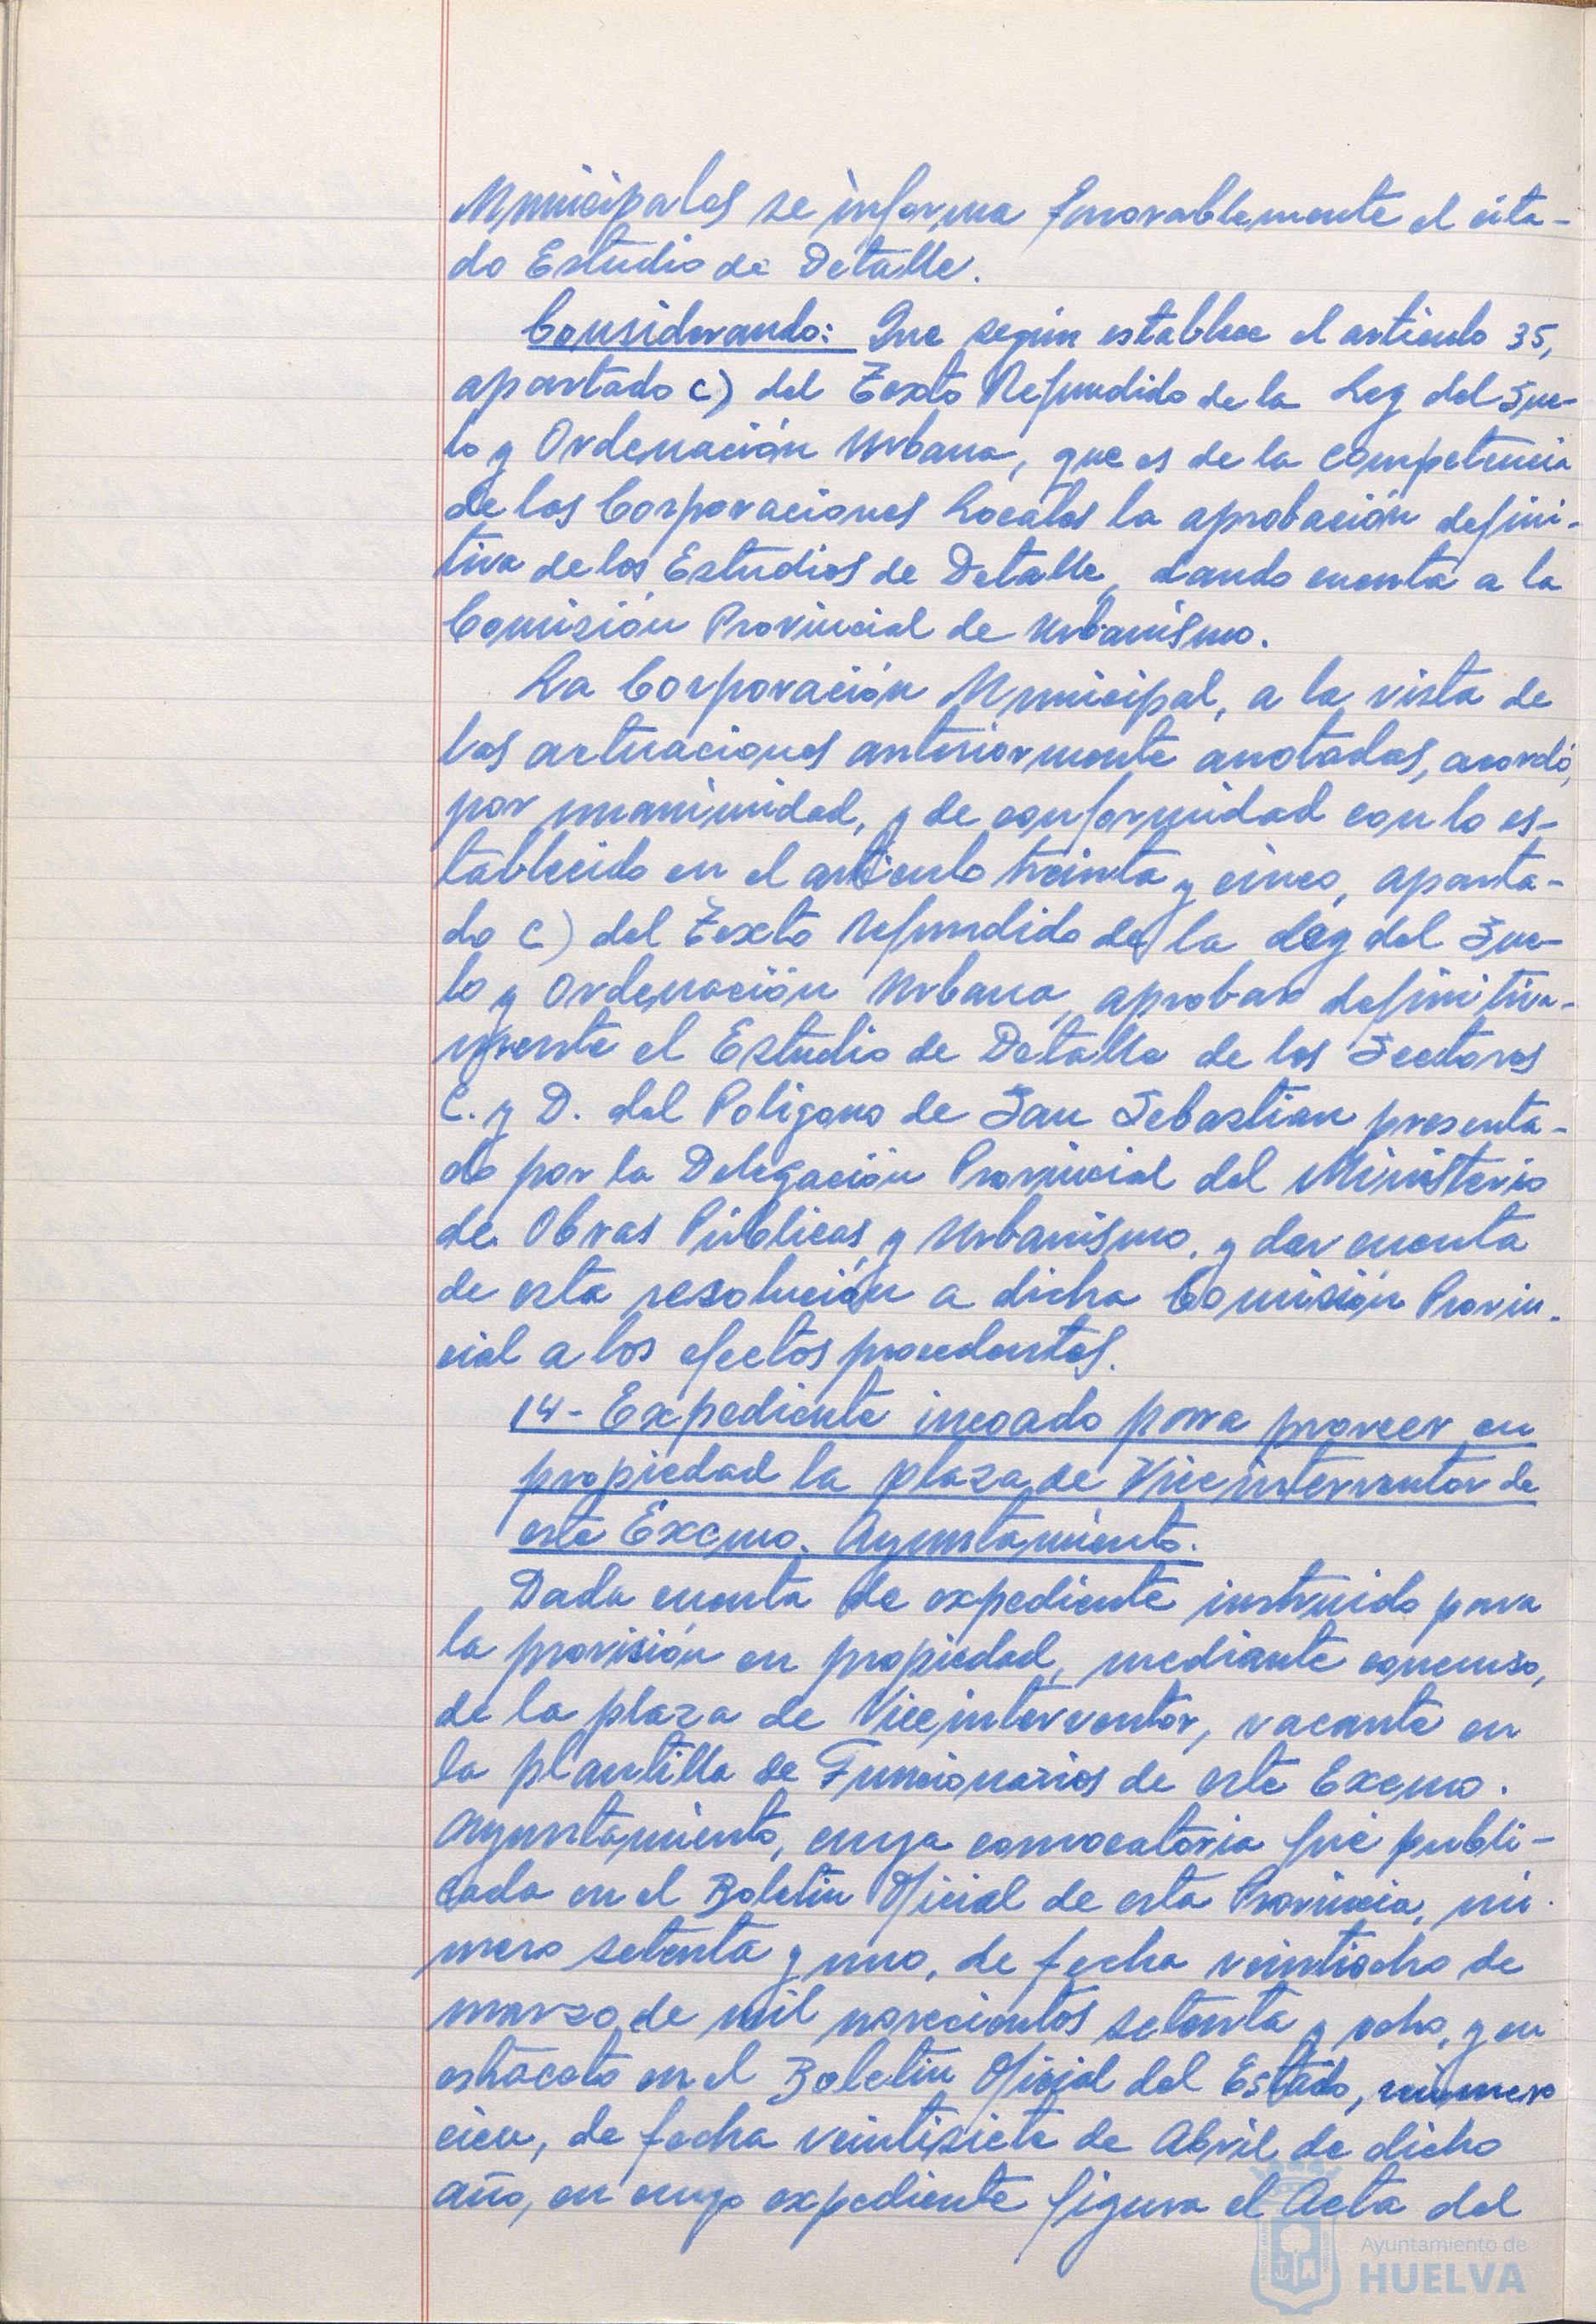 Municipales se informa favorablemente el cita-
do Estudio de Detalle.
Considerando: Que según establece el artículo 35,
apartado c) del Texto Refundido de la Ley del Sue-
lo y Ordenación Urbana, que es de la competencia
de las Corporaciones Locales la aprobación defini-
tiva de los Estudios de Detalle, dando cuenta a la
Comisión Provincial de Urbanismo.
La Corporación Municipal, a la vista de
las actuaciones anteriormente anotadas, acordó,
por unanimidad, y de conformidad con lo es-
tablecido en el artículo treinta y cinco, aparta-
do c) del Texto Refundido de la Ley del Sue-
lo y Ordenación Urbana, aprobar definitiva-
mente el Estudio de Detalle de los Sectores
C. y D. del Poligono de San Sebastian presenta-
do por la Delegación Provincial del Ministerio
de Obras Públicas y Urbanismo, y dar cuenta
de esta resolución a dicha Comisión Provin-
cial a los efectos procedentes.
14- Expediente incoado para proveer en
propiedad la plaza de Viceinterventor de
este Excmo. Ayuntamiento.
Dada cuenta de expediente instruido para
la provisión en propiedad, mediante concurso,
de la plaza de Viceinterventor, vacante en
la plantilla de Funcionarios de este Excmo.
Ayuntamiento, cuya convocatoria fué publi-
cada en el Boletin Oficial de esta Provincia, nú-
mero setenta y uno, de fecha veintiocho de
marzo de mil novecientos setenta y ocho, y en
estracato en el Boletin Oficial del Estado, número
cien, de fecha veintisiete de Abril de dicho
año, en cuyo expediente figura el Acta del
Ayuntamiento de
HUELVA